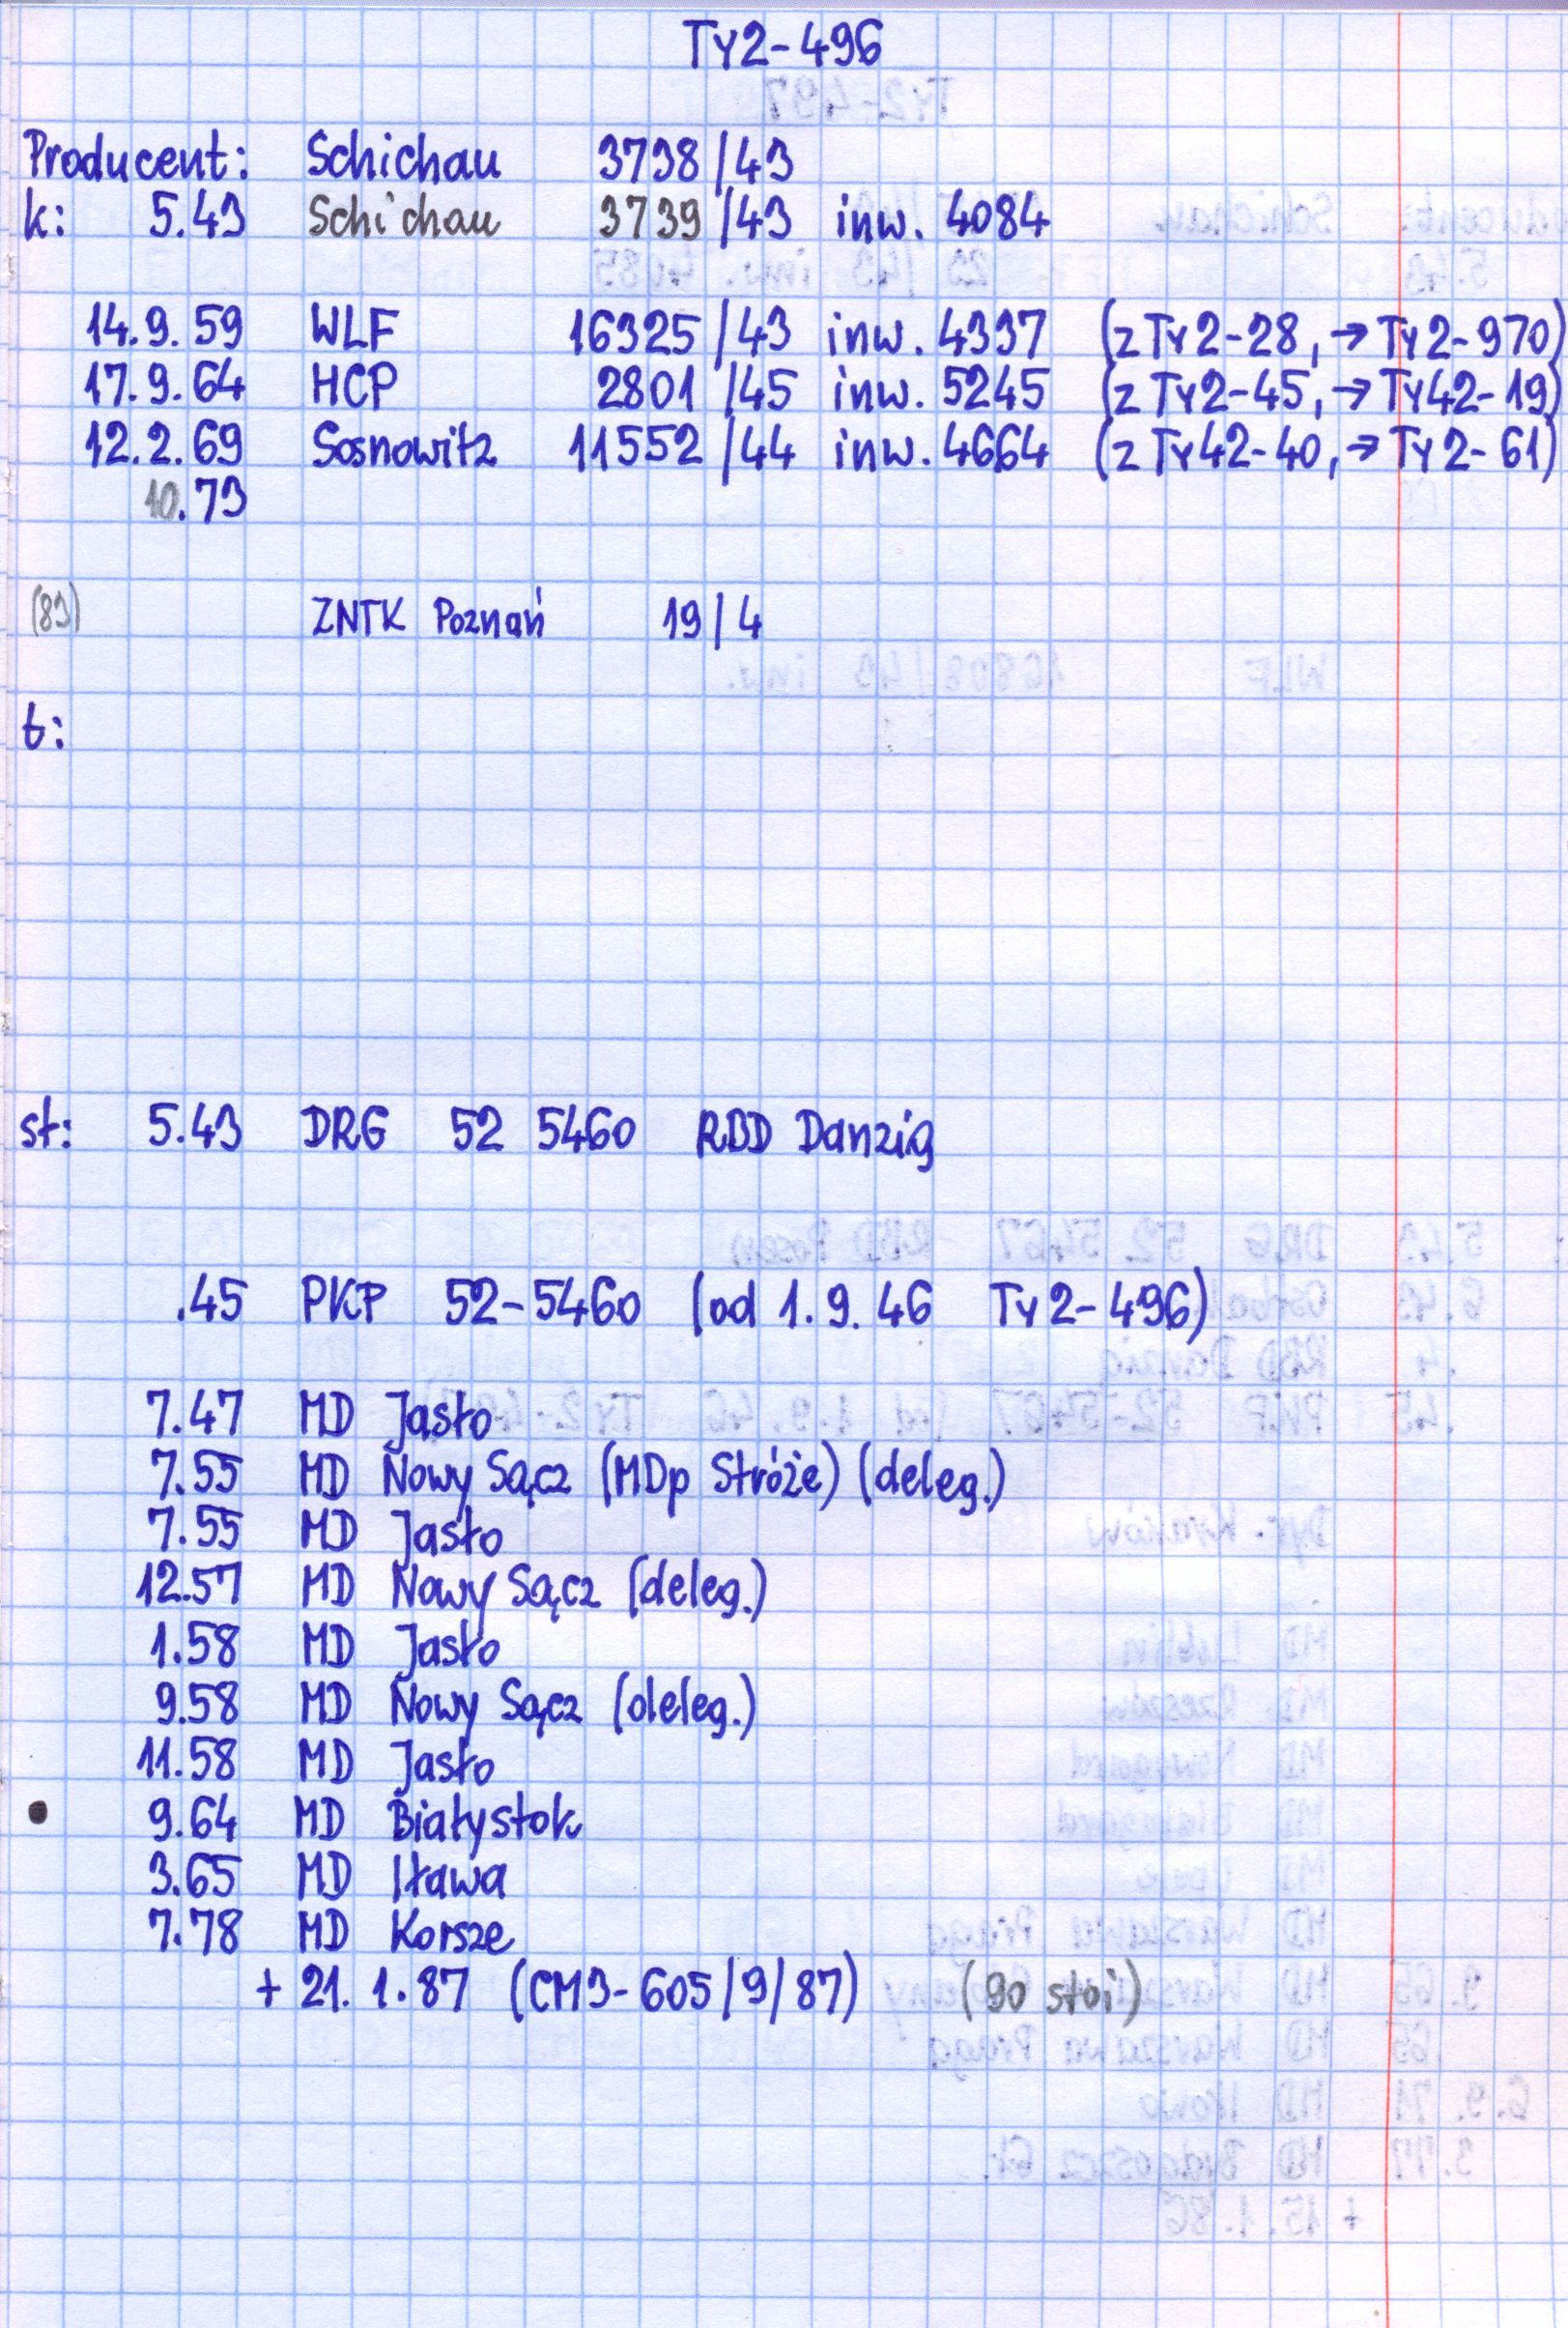 Ty2-496
Producent: Schichau 3738/43
k: 5.43 Schichau 3739/43 inw. 4084
14.9.59 WLF 16325/43 inw. 4337 (z Ty2-28, → Ty2-970)
17.9.64 HCP 2801/45 inw. 5245 (z Ty2-45, → Ty42-19)
12.2.69 Sosnowitz 11552/44 inw. 4664 (z Ty42-40, → Ty2-61)
10.73
(83) ZNTK Poznań 19/4
t:
st: 5.43 DRG 52 5460 RBD Danzig
.45 PKP 52-5460 (od 1.9.46 Ty2-496)
7.47 MD Jasło
7.55 MD Nowy Sącz (MDp Stróże) (deleg.)
7.55 MD Jasło
12.57 MD Nowy Sącz (deleg.)
1.58 MD Jasło
9.58 MD Nowy Sącz (deleg.)
11.58 MD Jasło
• 9.64 MD Białystok
3.65 MD Iława
7.78 MD Korsze
+ 21.1.87 (CM3-605/9/87) (90 stoi)